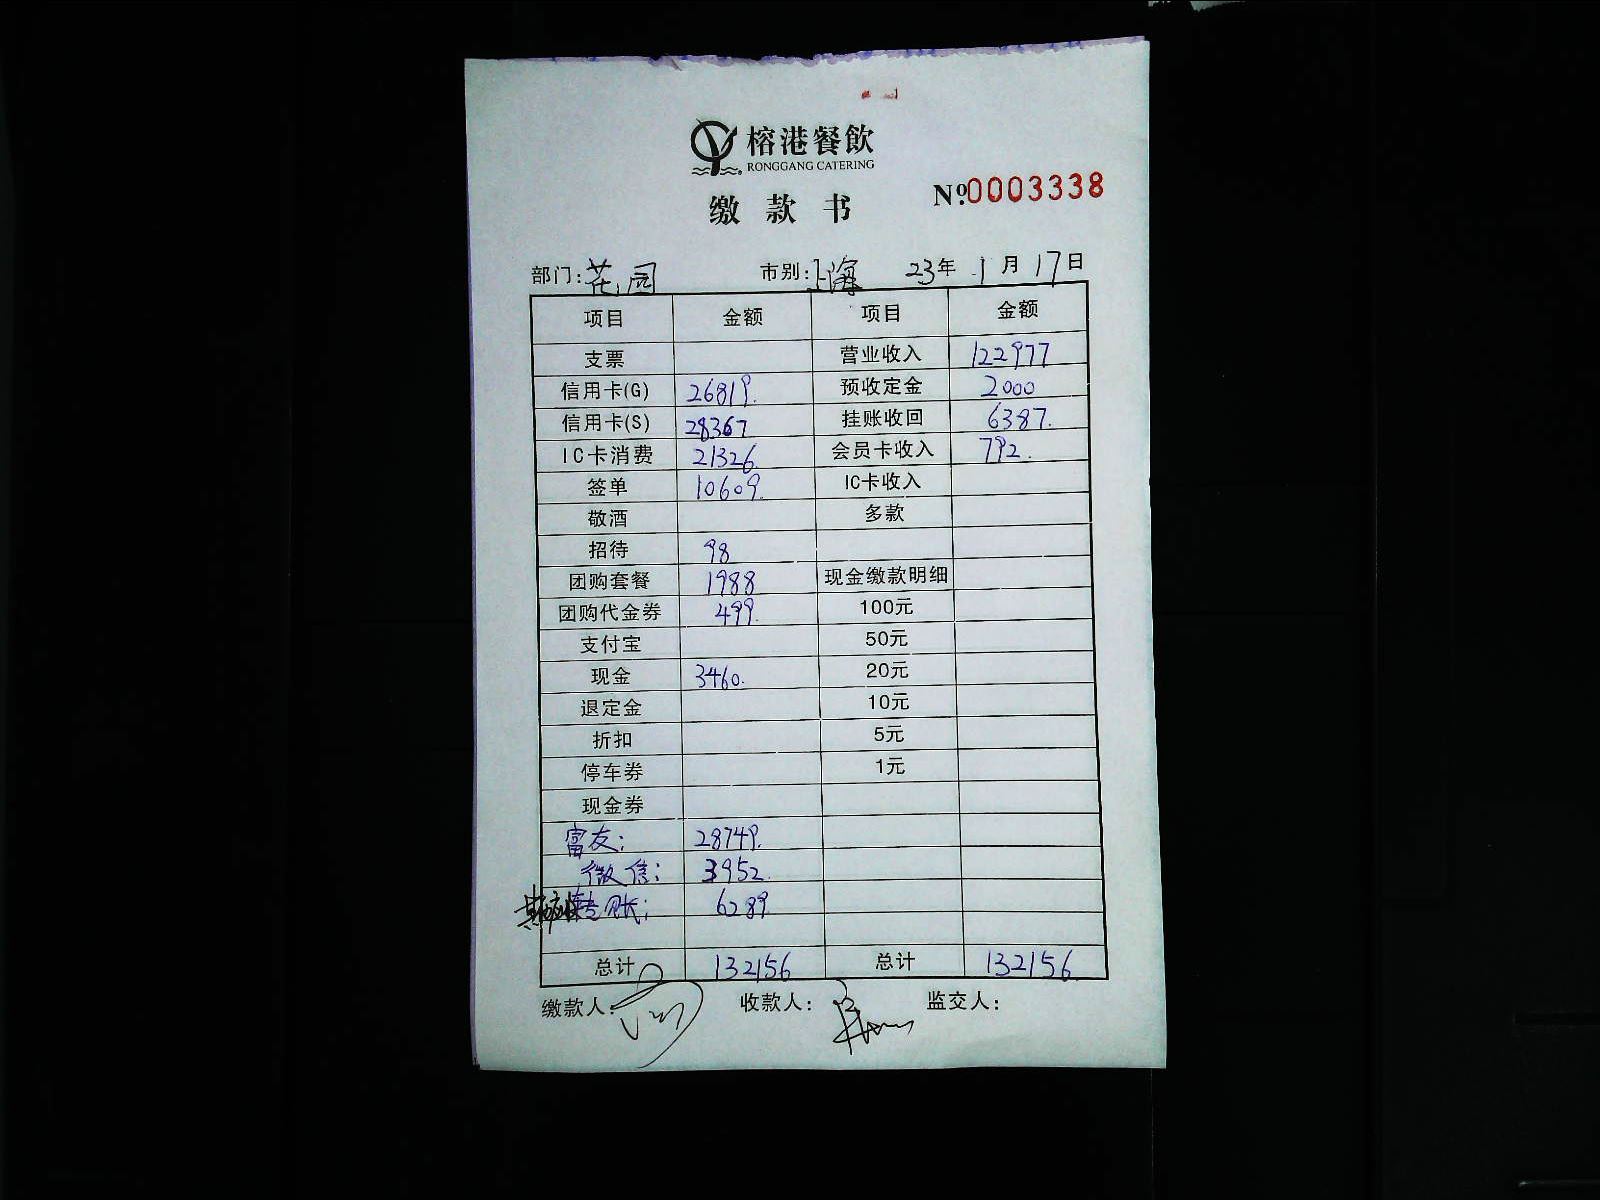 榕港餐飲
RONGGANG CATERING
缴款书
№0003338
部门:花园 市别:上海 23年1月17日
项目 金额 项目 金额
支票 营业收入 122977
信用卡(G) 26819. 预收定金 2000
信用卡(S) 28367 挂账收回 6387.
IC卡消费 21326. 会员卡收入 792.
签单 10609. IC卡收入
敬酒 多款
招待 98
团购套餐 1988 现金缴款明细
团购代金券 499. 100元
支付宝 50元
现金 3460. 20元
退定金 10元
折扣 5元
停车券 1元
现金券
富友: 28749.
微信: 3952.
转账: 6289
总计 132156 总计 132156
缴款人: 收款人: 监交人: